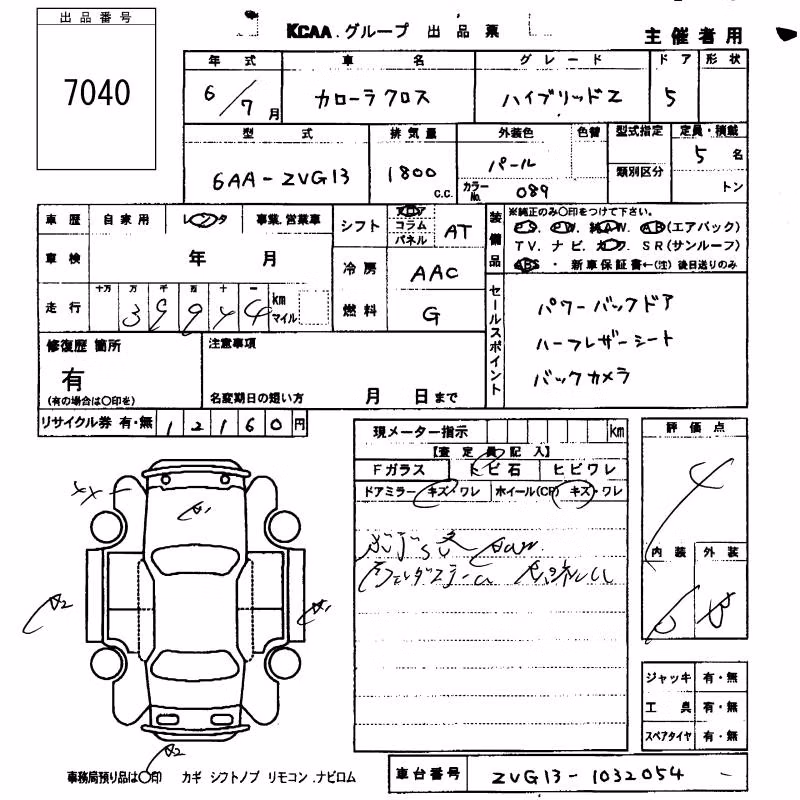 出品番号
7040
KCAA グループ 出品票
主催者用
年式 車名 グレード ドア 形状
6/7月 カローラクロス ハイブリッドZ 5
型式 排気量 外装色 色替 型式指定 定員・積載
6AA-ZVG13 1800 c.c. パール 5名
カラーNo. 089 類別区分 トン
車歴 自家用 レンタ 事業.営業車
シフト フロア コラム パネル AT
装備品 ※純正のみ〇印をつけて下さい。
PS. PW. 純AW. AB(エアバック)
TV. ナビ. カワ. SR(サンルーフ)
ABS ・ 新車保証書←(注)後日送りのみ
車検 年 月
冷房 AAC
走行 十万 万 千 百 十 一 km マイル
燃料 G
セールスポイント
パワーバックドア
ハーフレザーシート
バックカメラ
修復歴 箇所
有
(有の場合は〇印を)
注意事項
名変期日の短い方 月 日まで
リサイクル券 有・無 12160円
現メーター指示 km
【査定員記入】
Fガラス トビ石 ヒビワレ
ドアミラー キズ・ワレ ホイール(CP) キズ・ワレ
評価点
4
内装 外装
ジャッキ 有・無
工具 有・無
スペアタイヤ 有・無
XX
A1
A2
A1
A2
事務局預り品は〇印 カギ シフトノブ リモコン .ナビロム
車台番号 ZVG13-1032054